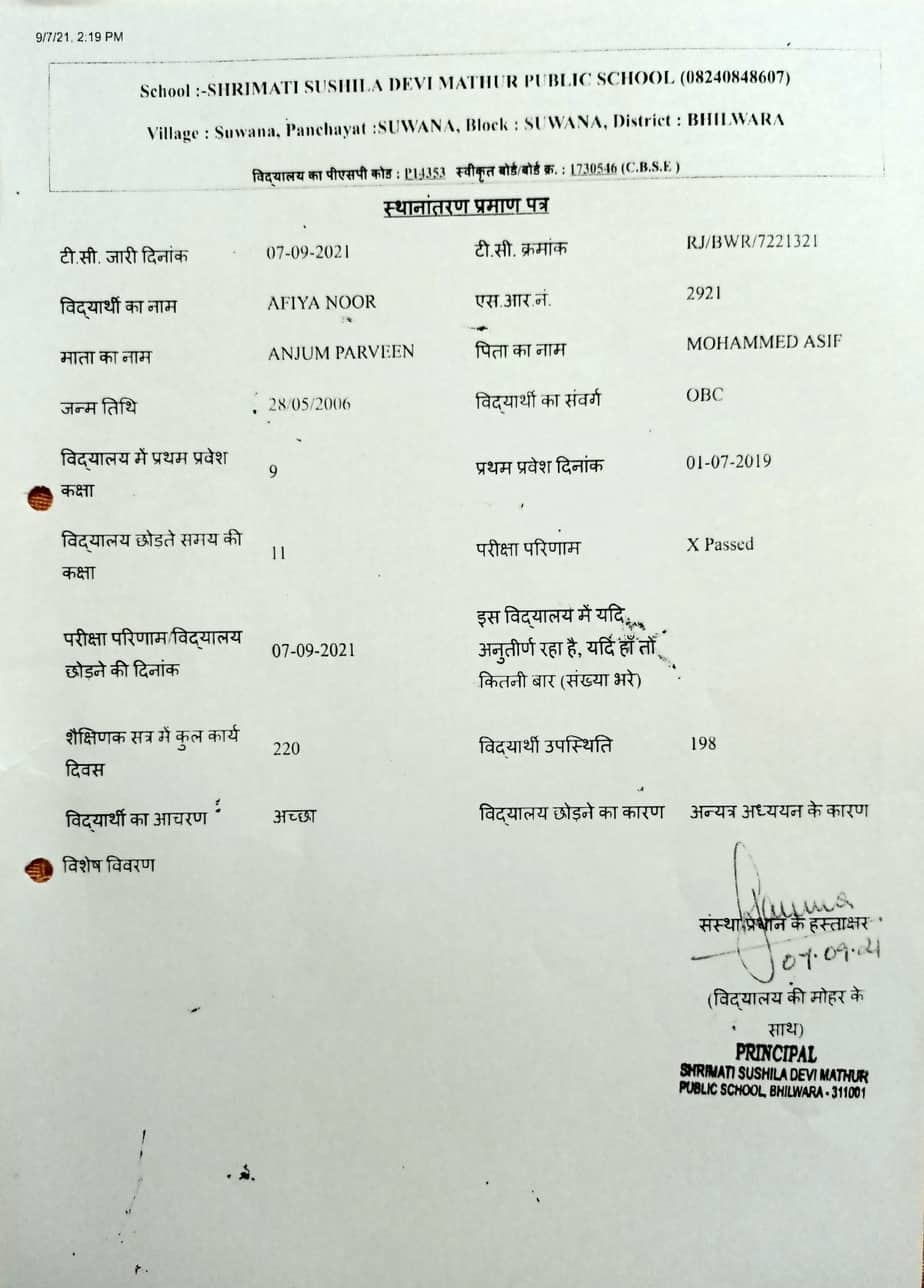 9/7/21, 2:19 PM
School :-SHRIMATI SUSHILA DEVI MATHUR PUBLIC SCHOOL (08240848607)
Village : Suwana, Panchayat :SUWANA, Block : SUWANA, District : BHILWARA
विद्यालय का पीएसपी कोड : P14353 स्वीकृत बोर्ड/बोर्ड क्र. : 1730546 (C.B.S.E )
स्थानांतरण प्रमाण पत्र
टी.सी. जारी दिनांक 07-09-2021 टी.सी. क्रमांक RJ/BWR/7221321
विद्यार्थी का नाम AFIYA NOOR एस.आर.नं. 2921
माता का नाम ANJUM PARVEEN पिता का नाम MOHAMMED ASIF
जन्म तिथि 28/05/2006 विद्यार्थी का संवर्ग OBC
विद्यालय में प्रथम प्रवेश
कक्षा 9 प्रथम प्रवेश दिनांक 01-07-2019
विद्यालय छोडते समय की
कक्षा 11 परीक्षा परिणाम X Passed
परीक्षा परिणाम/विद्यालय
छोड़ने की दिनांक 07-09-2021
इस विद्यालय में यदि
अनुतीर्ण रहा है, यदि हाँ तो
कितनी बार (संख्या भरे)
शैक्षिणक सत्र में कुल कार्य
दिवस 220 विद्यार्थी उपस्थिति 198
विद्यार्थी का आचरण अच्छा विद्यालय छोड़ने का कारण अन्यत्र अध्ययन के कारण
विशेष विवरण
संस्था प्रधान के हस्ताक्षर
07.09.21
(विद्यालय की मोहर के
साथ)
PRINCIPAL
SHRIMATI SUSHILA DEVI MATHUR
PUBLIC SCHOOL, BHILWARA - 311001